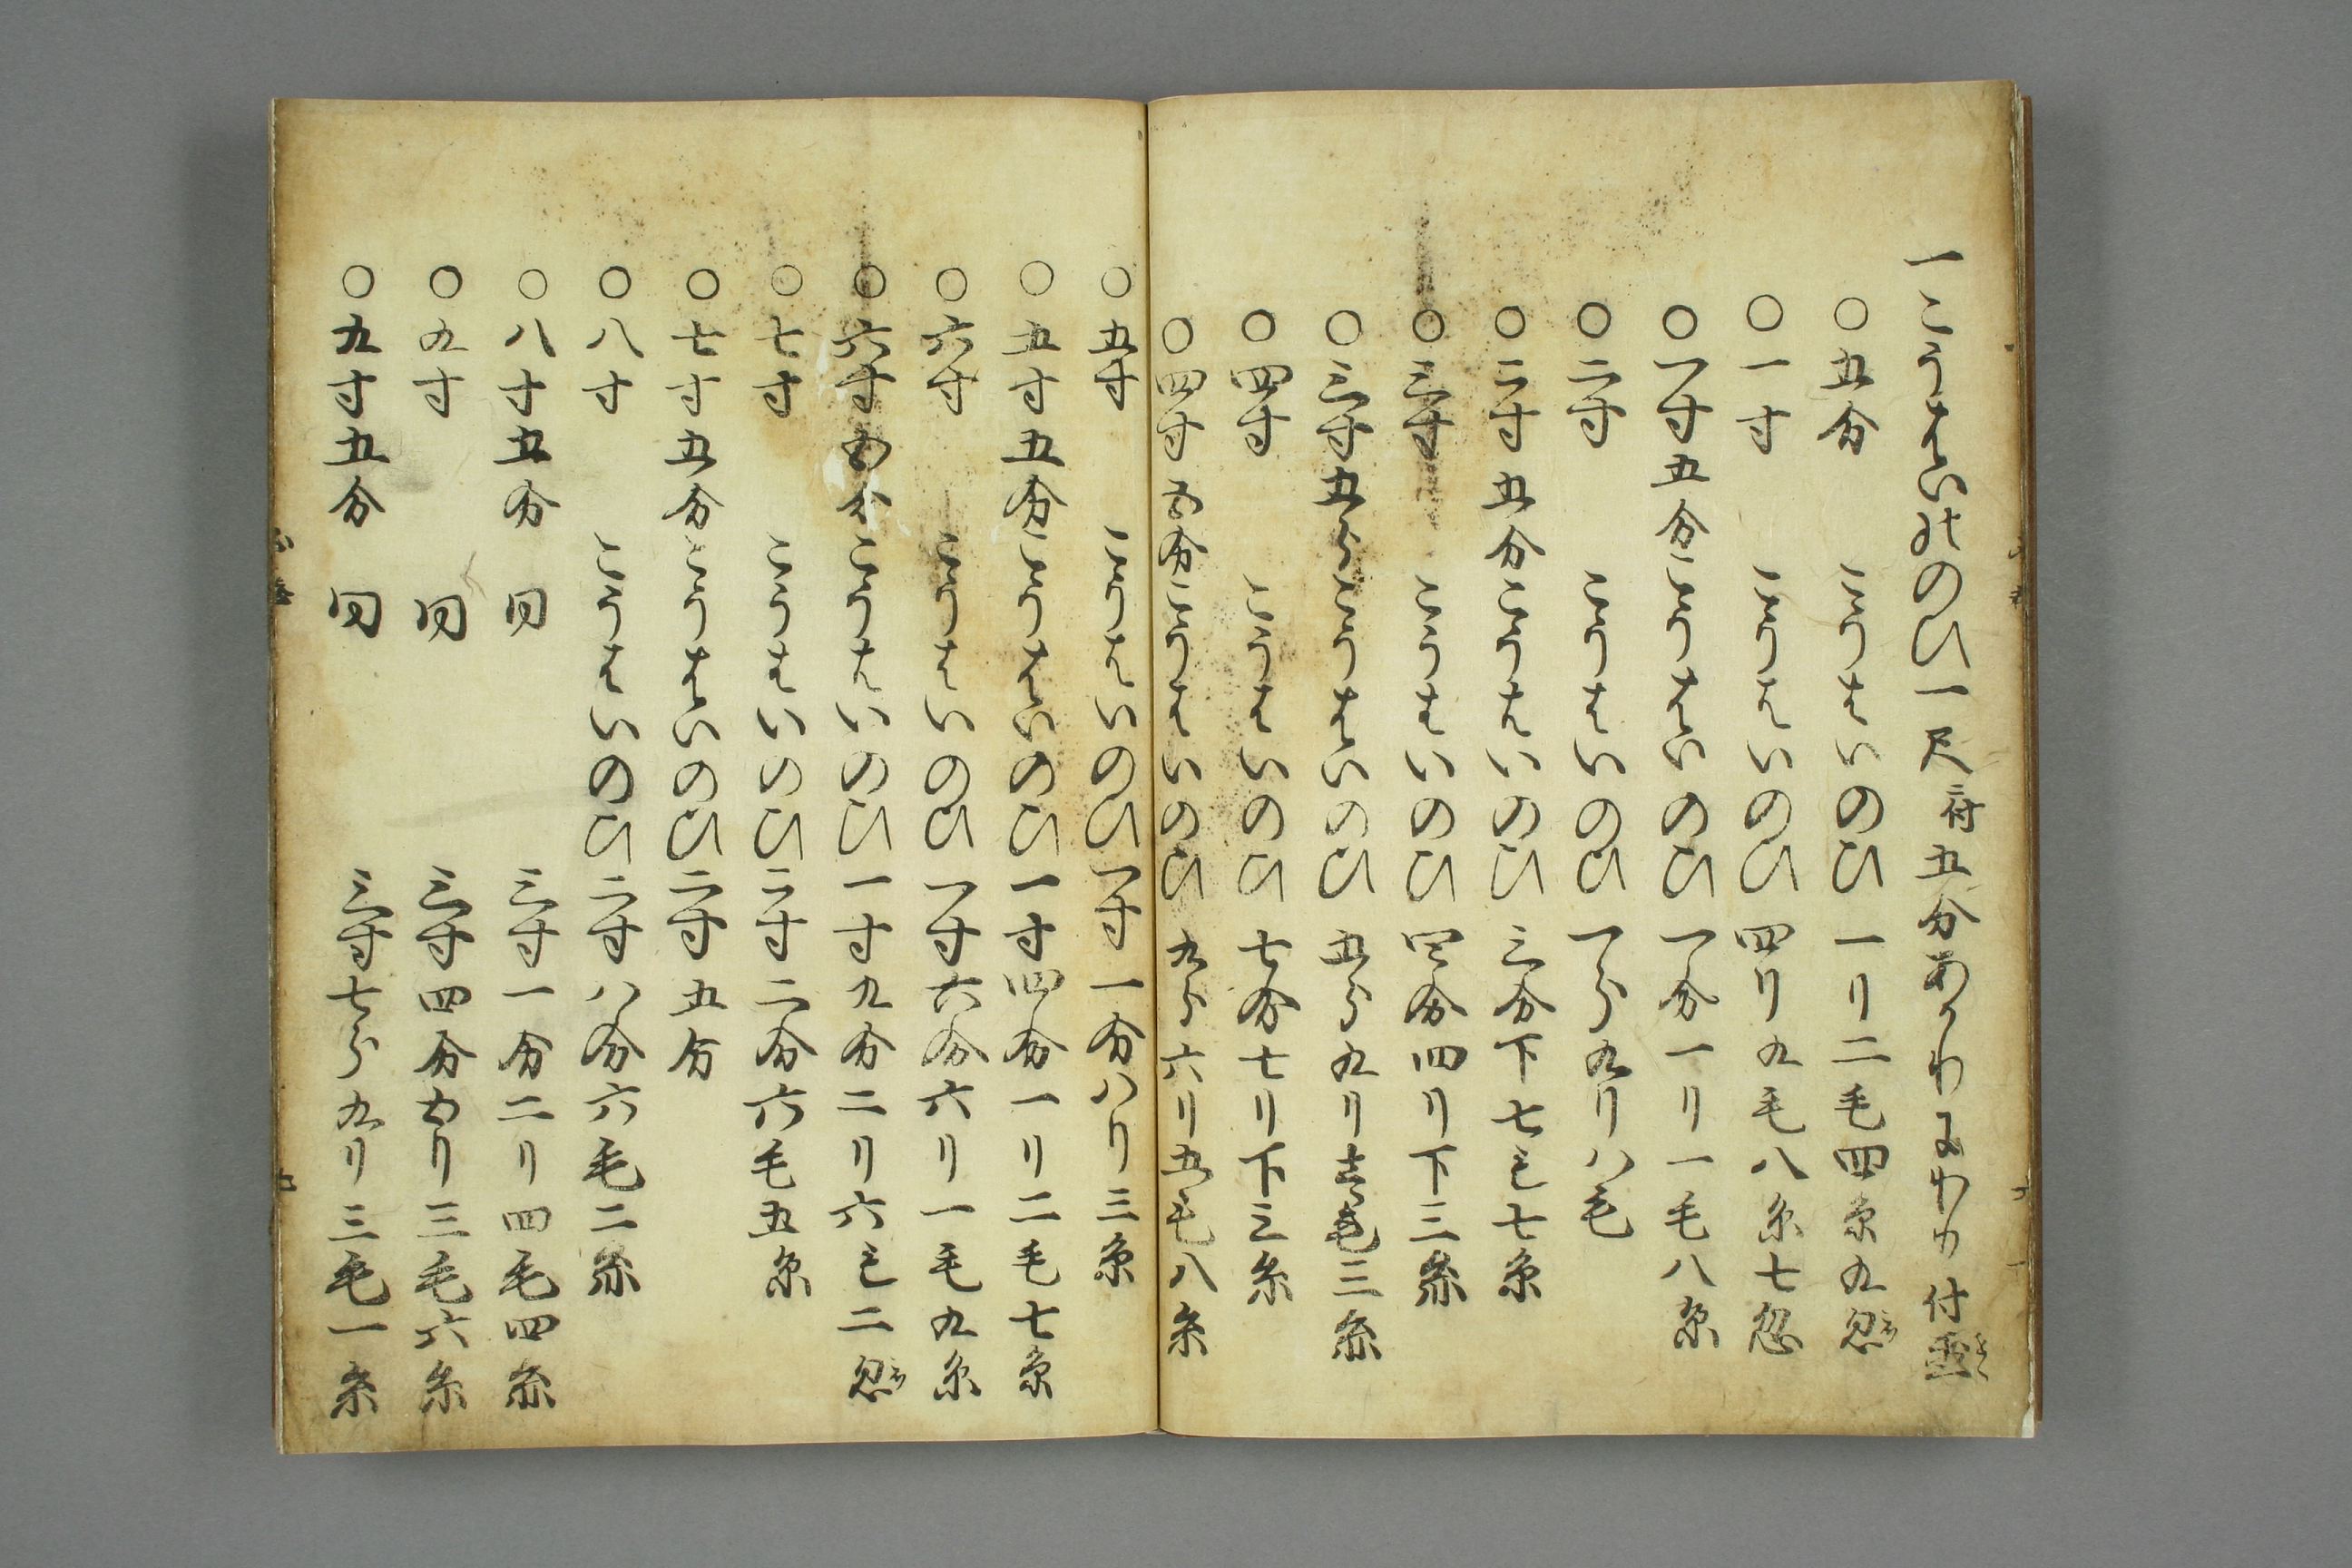 一こうはいせのひ一尺ニ付五分あかりよりわり付
○五分 こうはいのひ一リ二毛四糸九忽
○一寸 こうはいのひ四リ九毛八糸七忽
○一寸五分こうはいのひ一分一リ一毛八糸
○二寸 こうはいのひ一分九リ八毛
○二寸五分こうはいのひ三分下七毛七糸
○三寸 こうはいのひ四分四リ下三糸
○三寸五分こうはいのひ五分九リ壱毛三糸
○四寸 こうはいのひ七分七リ下三糸
○四寸五分こうはいのひ九分六リ五毛八糸
○五寸 こうはいのひ一寸一分八リ三糸
○五寸五分こうはいのひ一寸四分一リ二毛七糸
○六寸 こうはいのひ一寸六分六リ一毛九糸
○六寸五分こうはいのひ一寸九分二リ六毛二忽
○七寸 こうはいのひ二寸二分六毛五糸
○七寸五分こうはいのひ二寸五分
○八寸 こうはいのひ二寸八分六毛二糸
○八寸五分 同 三寸一分二リ四毛四糸
○九寸 同 三寸四分五リ三毛六糸
○九寸五分 同 三寸七分九リ三毛一糸